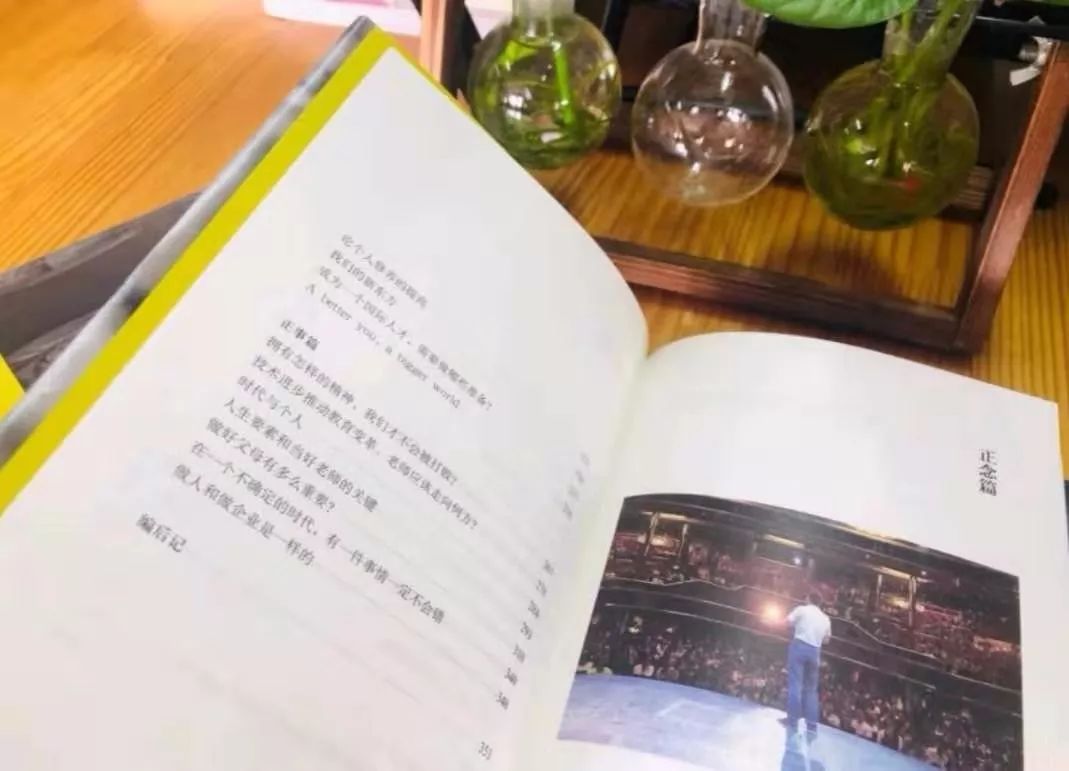 论个人修养的提高
我们的新东方
成为一个国际人才，需要做哪些准备？
A better you, a bigger world
正事篇
拥有怎样的精神，我们才不会被打败？
技术进步推动教育变革，老师应该走向何方？
时代与个人
人生要素和当好老师的关键
做好父母有多么重要？
在一个不确定的时代，有一件事情一定不会错
做人和做企业是一样的
编后记
340
348
351
正念篇